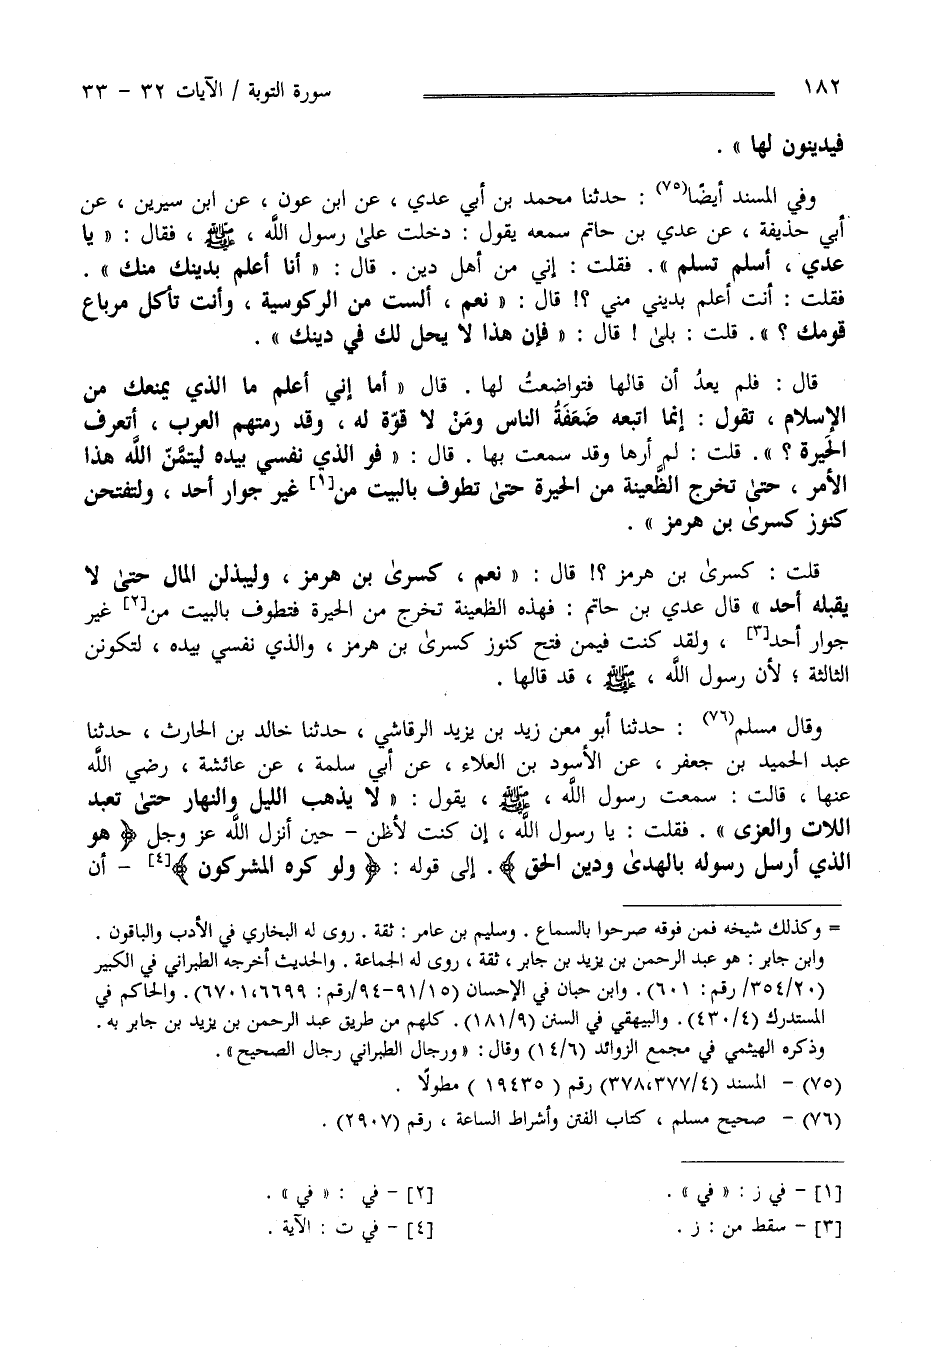 ١٨٢ سورة التوبة / الآيات ٣٢ - ٣٣
فيدينون لها » .
وفي المسند أيضًا(٧٥) : حدثنا محمد بن أبي عدي ، عن ابن عون ، عن ابن سيرين ، عن
أبي حذيفة ، عن عدي بن حاتم سمعه يقول : دخلت علىٰ رسول اللَّه ، ﷺ ، فقال : « يا
عدي ، أسلم تسلم » . فقلت : إني من أهل دين . قال : « أنا أعلم بدينك منك » .
فقلت : أنت أعلم بديني مني ؟! قال : « نعم ، ألست من الركوسية ، وأنت تأكل مرباع
قومك ؟ » . قلت : بلىٰ ! قال : « فإن هذا لا يحل لك في دينك » .
قال : فلم يعدُ أن قالها فتواضعتُ لها . قال « أما إني أعلم ما الذي يمنعك من
الإسلام ، تقول : إنما اتبعه ضَعَفَةُ الناس ومَنْ لا قوّة له ، وقد رمتهم العرب ، أتعرف
الحَيرة ؟ » . قلت : لم أرها وقد سمعت بها . قال : « فو الذي نفسي بيده ليتمَّنّ اللَّه هذا
الأمر ، حتىٰ تخرج الظَّعينة من الحيرة حتىٰ تطوف بالبيت من[١] غير جوار أحد ، ولتفتحن
كنوز كسرىٰ بن هرمز » .
قلت : كسرىٰ بن هرمز ؟! قال : « نعم ، كسرىٰ بن هرمز ، وليبذلن المال حتىٰ لا
يقبله أحد » قال عدي بن حاتم : فهذه الظعينة تخرج من الحيرة فتطوف بالبيت من[٢] غير
جوار أحد[٣] ، ولقد كنت فيمن فتح كنوز كسرىٰ بن هرمز ، والذي نفسي بيده ، لتكونن
الثالثة ؛ لأن رسول اللَّه ، ﷺ ، قد قالها .
وقال مسلم(٧٦) : حدثنا أبو معن زيد بن يزيد الرقاشي ، حدثنا خالد بن الحارث ، حدثنا
عبد الحميد بن جعفر ، عن الأسود بن العلاء ، عن أبي سلمة ، عن عائشة ، رضي اللَّه
عنها ، قالت : سمعت رسول اللَّه ، ﷺ ، يقول : « لا يذهب الليل والنهار حتىٰ تعبد
اللات والعزى » . فقلت : يا رسول اللَّه ، إن كنت لأظن - حين أنزل اللَّه عز وجل ﴿ هو
الذي أرسل رسوله بالهدىٰ ودين الحق ﴾ . إلى قوله : ﴿ ولو كره المشركون ﴾[٤] - أن
= وكذلك شيخه فمن فوقه صرحوا بالسماع . وسليم بن عامر : ثقة . روى له البخاري في الأدب والباقون .
وابن جابر : هو عبد الرحمن بن يزيد بن جابر ، ثقة ، روى له الجماعة . والحديث أخرجه الطبراني في الكبير
(٣٥٤/٢٠/ رقم: ٦٠١) . وابن حبان في الإحسان (٩١/١٥-٩٤/رقم: ٦٧٠١،٦٦٩٩) . والحاكم في
المستدرك (٤٣٠/٤) . والبيهقي في السنن (١٨١/٩) . كلهم من طريق عبد الرحمن بن يزيد بن جابر به .
وذكره الهيثمي في مجمع الزوائد (١٤/٦) وقال: « ورجال الطبراني رجال الصحيح» .
(٧٥) - المسند (٣٧٨،٣٧٧/٤) رقم ( ١٩٤٣٥ ) مطولًا .
(٧٦) - صحيح مسلم ، كتاب الفتن وأشراط الساعة ، رقم (٢٩٠٧) .
[١] - في ز : « في » . [٢] - في : « في » .
[٣] - سقط من : ز . [٤] - في ت : الآية .